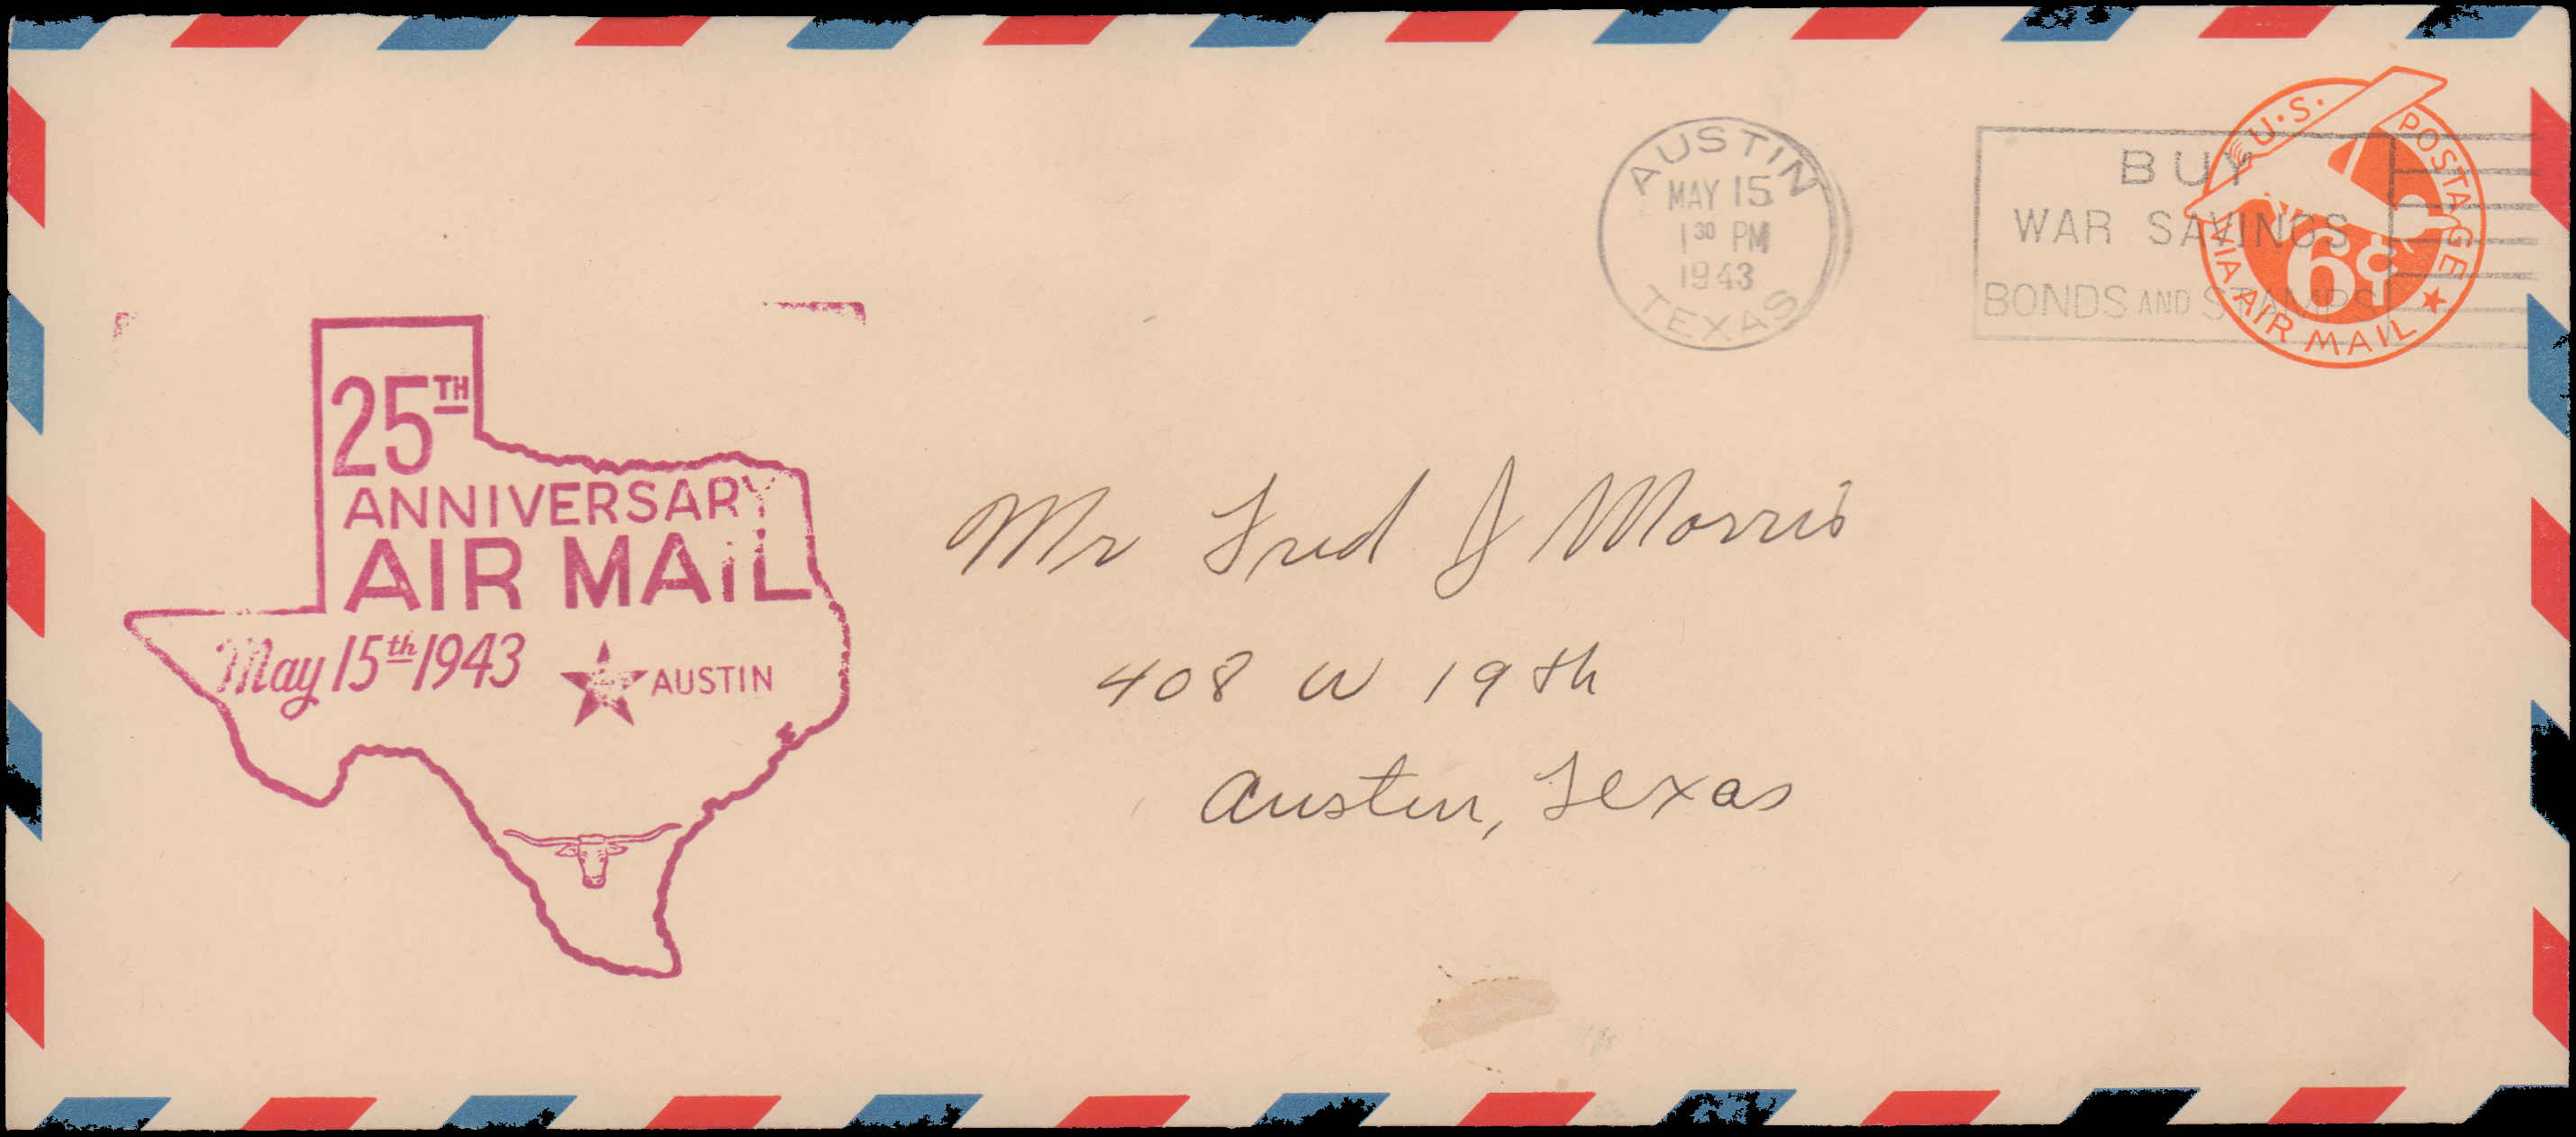 AUSTIN
MAY 15
1 30 PM
1943
TEXAS
BUY
WAR SAVINGS
BONDS AND STAMPS
U.S. POSTAGE
6¢
VIA AIR MAIL
25TH
ANNIVERSARY
AIR MAIL
May 15th 1943
AUSTIN
Mr Fred J Morris
408 W 19th
Austin, Texas